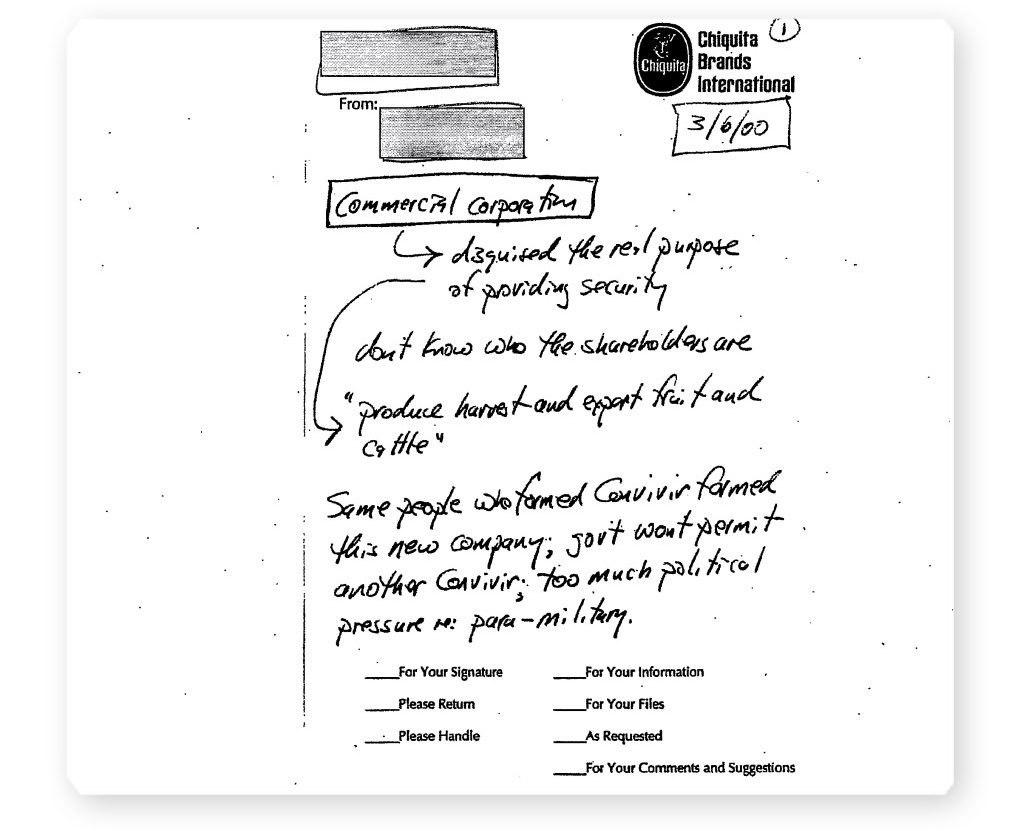 1
Chiquita
Chiquita
Brands
International
From:
3/6/00
Commercial Corporation
disguised the real purpose
of providing security
don't know who the shareholders are
"produce harvest and export fruit and
cattle"
Same people who formed Convivir formed
this new company; gov't won't permit
another Convivir; too much political
pressure re: para-military.
___For Your Signature
___For Your Information
___Please Return
___For Your Files
___Please Handle
___As Requested
___For Your Comments and Suggestions